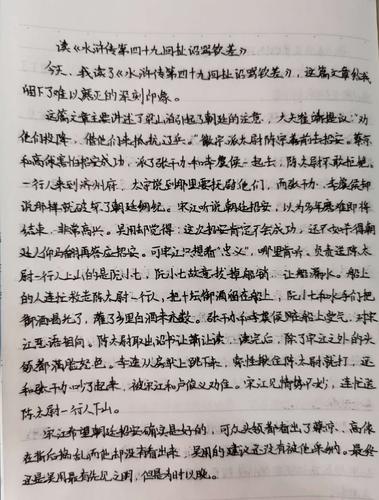 读《水浒传第四十九回扯诏骂钦差》
今天，我读了《水浒传第四十九回扯诏骂钦差》，这篇文章给我
留下了难以磨灭的深刻印象。
这篇文章主要讲述了梁山泊引起了朝廷的注意，大夫崔靖提议："劝
他们投降，借他们来抵抗辽兵。"徽宗派太尉陈宗善前去招安。蔡京
和高俅害怕招安成功，派了张干办和李虞侯一起去，陈太尉不敢拒绝。
一行人来到济州府，太守张叔夜要抚慰他们，而张干办、李虞侯却
说那样就破坏了朝廷纲纪。宋江听说朝廷招安，以为多年愿难即将
结束，非常高兴。吴用却觉得：这次招安肯定不会成功，还不如杀得朝
廷人仰马翻再答应招安。可宋江只想着"忠义"，哪里肯听。负责迎陈太
尉一行人上山的是阮小七，阮小七故意拔掉船销，让船漏水。船上
的人连忙救走陈太尉一行人，把十坛御酒留在船上，阮小七和水手们把
御酒喝光了，灌了乡里白酒来充数。张干办和李虞侯在船上受气，对宋
江恶语相向。陈太尉取出诏书让萧让读，读完后，除了宋江之外的头
领都满脸怒色。李逵从房梁上跳下来，索性揪住陈太尉就打，还
和张干办吵了起来，被宋江和卢俊义劝住。宋江见情势不妙，连忙送
陈太尉一行人下山。
宋江希望朝廷招安确实是好的，可众头领都看出了蔡京、高俅
在背后捣乱而他却没有看出来，吴用的建议还没有被他采纳。最终
还是吴用最有先见之明，但是为时以晚。